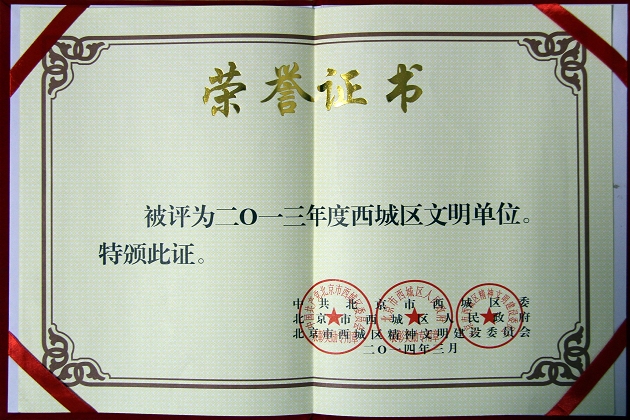 荣誉证书
被评为二〇一三年度西城区文明单位。
特颁此证。
中共北京市西城区委
北京市西城区人民政府
北京市西城区精神文明建设委员会
二〇一四年三月